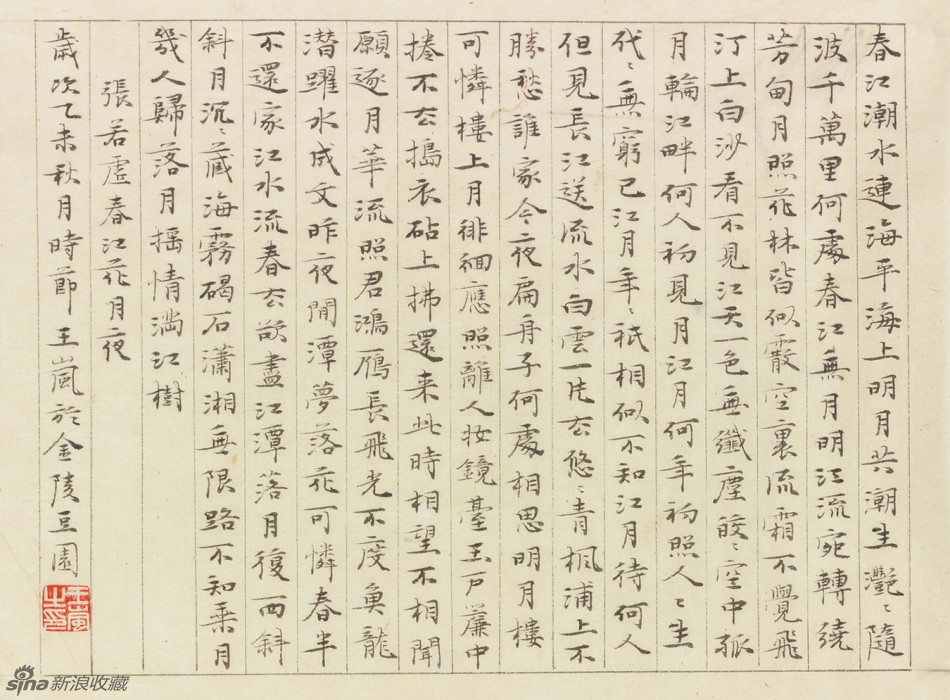 春江潮水連海平海上明月共潮生灩〻隨
波千萬里何處春江無月明江流宛轉繞
芳甸月照花林皆似霰空裏流霜不覺飛
汀上白沙看不見江天一色無纖塵皎〻空中孤
月輪江畔何人初見月江月何年初照人〻生
代〻無窮已江月年〻祇相似不知江月待何人
但見長江送流水白雲一片去悠〻青楓浦上不
勝愁誰家今夜扁舟子何處相思明月樓
可憐樓上月徘徊應照離人妝鏡臺玉戶簾中
捲不去搗衣砧上拂還来此時相望不相聞
願逐月華流照君鴻鴈長飛光不度魚龍
潛躍水成文昨夜閒潭夢落花可憐春半
不還家江水流春去欲盡江潭落月復西斜
斜月沉〻藏海霧碣石瀟湘無限路不知乘月
幾人歸落月搖情滿江樹
張若虛春江花月夜
歲次乙未秋月時節王嵐於金陵豆園
王嵐之印
sina新浪收藏